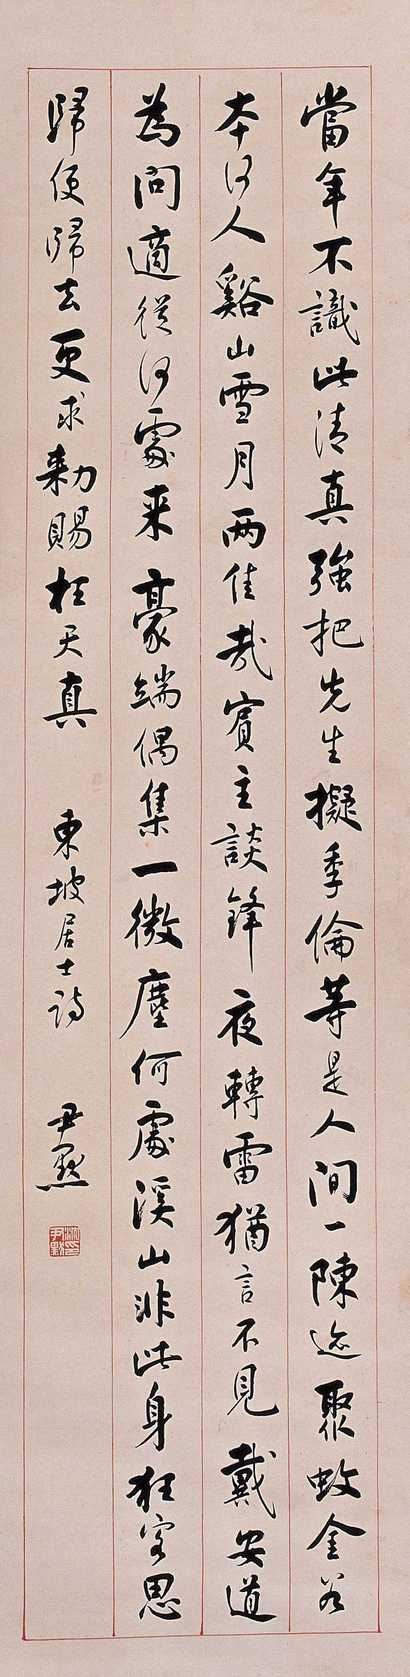 當年不識此清真強把先生擬季倫等是人間一陳迹聚蚊金谷
本何人谿山雪月兩佳哉賓主談鋒夜轉雷猶言不見戴安道
為問適從何處來豪端偶集一微塵何處溪山非此身狂客思
歸便歸去更求勅賜枉天真
東坡居士詩
尹默
沈尹默